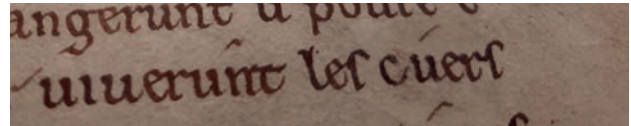 angerunt li poure e
uiuerunt leſ cuerſ